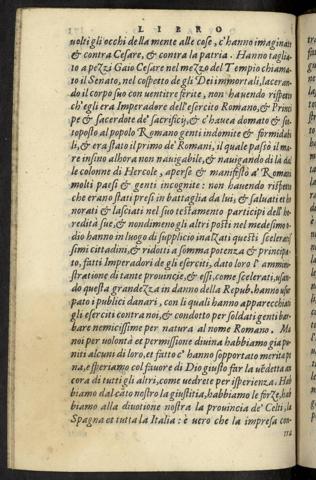 LIBRO
uolti gli occhi della mente alle cose, c'hanno imaginate
& contra Cesare, & contra la patria. Hanno taglia-
to a pezzi Gaio Cesare nel mezzo del Tempio chiama-
to il Senato, nel cospetto de gli Dei immortali, laceran-
do il corpo suo con uentitre ferite, non hauendo rispetto
ch'egli era Imperadore dell'esercito Romano, & Princi
pe & sacerdote de' sacrificij, & c'hauea domato & sot
toposto al popolo Romano genti indomite & formidabi
li, & era stato il primo de' Romani, il quale passò il ma-
re insino alhora non nauigabile, & nauigando di là dal
le colonne di Hercole, aperse & manifestò a' Romani
molti paesi & genti incognite: non hauendo rispetto
che erano stati presi in battaglia da lui, & saluati et ho
norati & lasciati nel suo testamento participi dell' he-
redità sue, & nondimeno gli altri posti nel medesimo o-
dio hanno in luogo di supplicio inalzati questi scelerat
ssimi cittadini, & ridotti a somma potenza & principa-
to, fatti Imperadori de gli eserciti, dato loro l'ammini-
stratione di tante prouincie, & essi, come scelerati, usan
do questa grandezza in danno della Repub. hanno usur
pato i publici danari, con li quali hanno apparecchiato
gli eserciti contra noi, & condotto per soldati genti bar-
bare nemicissime per natura al nome Romano. Ma
noi per uolontà et permissione diuina habbiamo gia pu-
niti alcuni di loro, et fatto c'hanno sopportato merite pe
na, e speriamo col fauore di Dio giusto far la uẽdetta an
cora di tutti gli altri, come uedrete per isperienza. Hab
biamo dal cãto nostro la giustitia, habbiamo le forze, hab
biamo alla diuotione nostra la prouincia de' Celti, la
Spagna et tutta la Italia: è uero che la impresa con-
tra